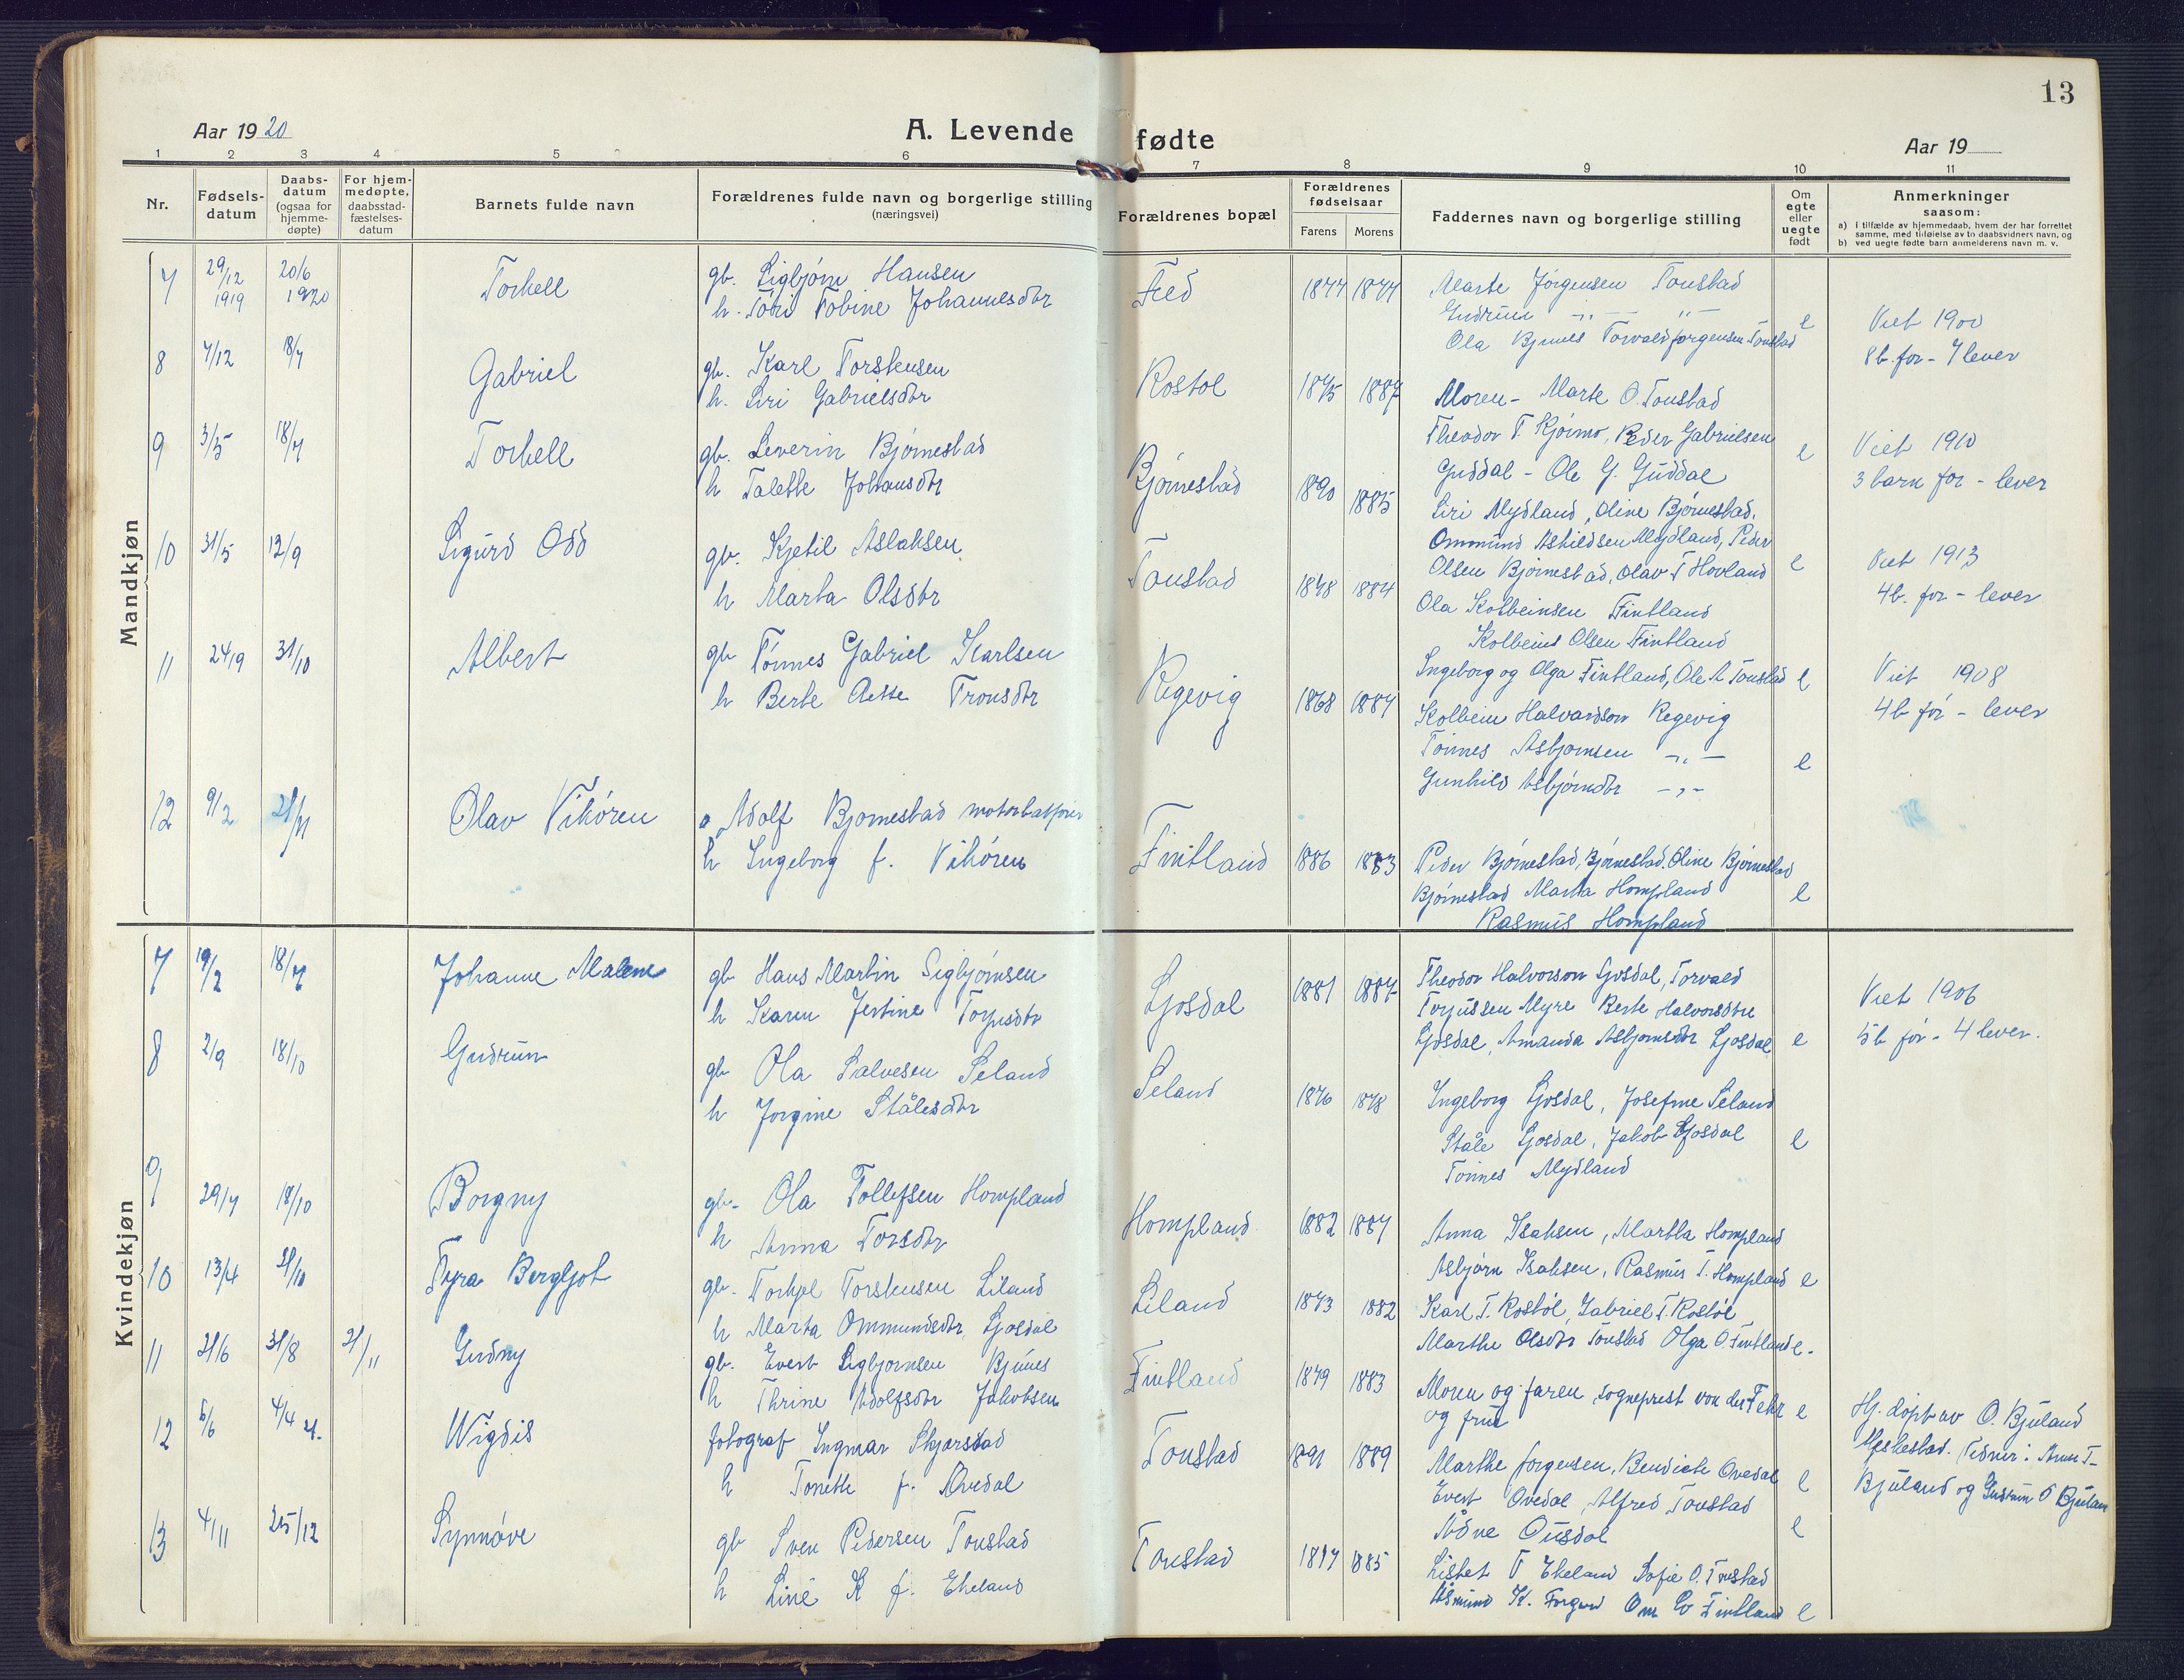 13
Aar 1920
A. Levende fødte
Aar 19
1 2 3 4 5 6 7 8 9 10 11
Nr.
Fødsels-
datum
Daabs-
datum
(ogsaa for
hjemme-
døpte)
For hjem-
medøpte,
daabsstad-
fæstelses-
datum
Barnets fulde navn
Forældrenes fulde navn og borgerlige stilling
(næringsvei)
Forældrenes bopæl
Forældrenes
fødselsaar
Farens Morens
Faddernes navn og borgerlige stilling
Om
egte
eller
uegte
født
Anmerkninger
saasom:
a) I tilfælde av hjemmedaab, hvem der har forrettet
samme, med tilføielse av to daabsvidners navn, og
b) ved uegte fødte barn anmelderens navn m. v.
Mandkjøn
7 29/12 1919 20/6 1920 Torkell
gb. Sigbjørn Hansen
h. Tori Tobine Johannesdtr
1877 1877
Marte Jørgensen Tonstad
Gudrun -"- -"-
Ola Bjunes Torvald Jørgensen Tonstad
e
Viet 1900
8 b. før - 7 lever
8 7/12 18/7 Gabriel
gb. Karl Torskensen
h. Siri Gabrielsdtr
Rostol 1875 1887
Moren - Marte O. Tonstad
Theodor T. Kjørmo, Peder Gabrielsen
Guddal - Ole G. Guddal
e
Viet 1910
3 barn før - lever
9 3/5 18/7 Torkell
gb. Severin Bjørnestad
h Talette Johansdtr
Bjørnestad 1890 1885
Siri Mydland, Oline Bjørnestad,
Ommund Askildsen Mydland, Peder
Olsen Bjørnestad, Olav T Hovland
e
Viet 1913
4 b. før - lever
10 31/5 12/9 Sigurd Odd
gb. Kjetil Aslaksen
h Marta Olsdtr
Tonstad 1878 1884
Ola Kolbeinsen Fintland
Kolbeins Olsen Fintland
Ingeborg og Olga Fintland, Ole A Tonstad
e
Viet 1908
4 b før - lever
11 24/9 31/10 Albert
gb Tønnes Gabriel Karlsen
h Berte Tronsdtr
Regevig 1868 1887
Kolbein Halvardson Regevig
Tønnes Asbjørnsen -"-
Gunhild Asbjørndtr -"-
e
12 9/2 21/11 Olav Vikøren
Adolf Bjørnestad motorbatfører
h Ingeborg f. Vikøren
Fintland 1886 1883
Peder Bjørnestad, Bjørnestad. Oline Bjørnestad
Bjørnestad Marta Hompland
Rasmus Hompland
e
Kvindekjøn
7 19/2 18/7 Johanne Malene
gb Hans Martin Sigbjørnsen
h Karen Jertine Torjusdtr
Ljosdal 1881 1887
Theodor Halvorson Ljosdal, Torvald
Torjussen Myre Berte Halvorsdtre
Ljosdal, Amanda Asbjørnsdtr Ljosdal
e
Viet 1906
5 b før - 4 lever.
8 2/9 18/10 Gudrun
gb Ola Salvesen Seland
h Jorgine Stålesdtr
Seland 1876 1878
Ingeborg Ljosdal, Josefine Seland
Ståle Ljosdal, Jakob Ljosdal
Tønnes Mydland
e
9 29/7 18/10 Borgny
gb. Ola Tollefsen Hompland
h Anna Torsdtr
Hompland 1882 1887
Anna Isaksen, Martha Hompland
Asbjørn Isaksen, Rasmus T. Hompland
e
10 13/4 31/10 Tyra Bergljot
gb. Torkjel Torskensen Liland
h Marta Ommundsdtr, Ljosdal
Liland 1873 1882
Karl T. Rostøl, Gabriel T. Rostøl
Marthe Olsdtr Tonstad Olga O. Fintland
e.
11 21/6 31/8 21/11 Gudny
gb. Evert Sigbjørnsen Bjunes
h Thrine Adolfsdtr Jakobsen
Fintland 1879 1883
Moren og faren sogneprest von der Fehr
og frue
e
Hj. døpt av O. Bjuland
Heskestad. Vidner: Anne T.
Bjuland og Gudrun O Bjulan
12 5/6 4/4 21. Wigdis
fotograf Ingmar Skjærstad
h Tonette f. Øvedal
Tonstad 1891 1889
Marthe Jørgensen, Bendicte Øvedal
Evert Øvedal, Alfred Tonstad
Ådne Ousdal
e
e
13 4/11 25/12 Synnøve
gb Sven Pedersen Tonstad
h Line K f. Ekeland
Tonstad 1877 1885
Lisbet T Ekeland Sofie O. Tonstad
Åsmund K. Om Fintland
e